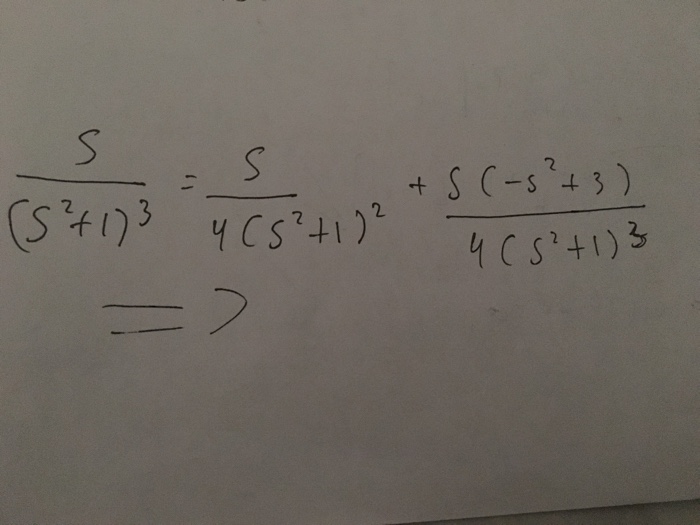 S/(S²+1)³ = S/4(S²+1)² + S(-s²+3)/4(S²+1)³
=>